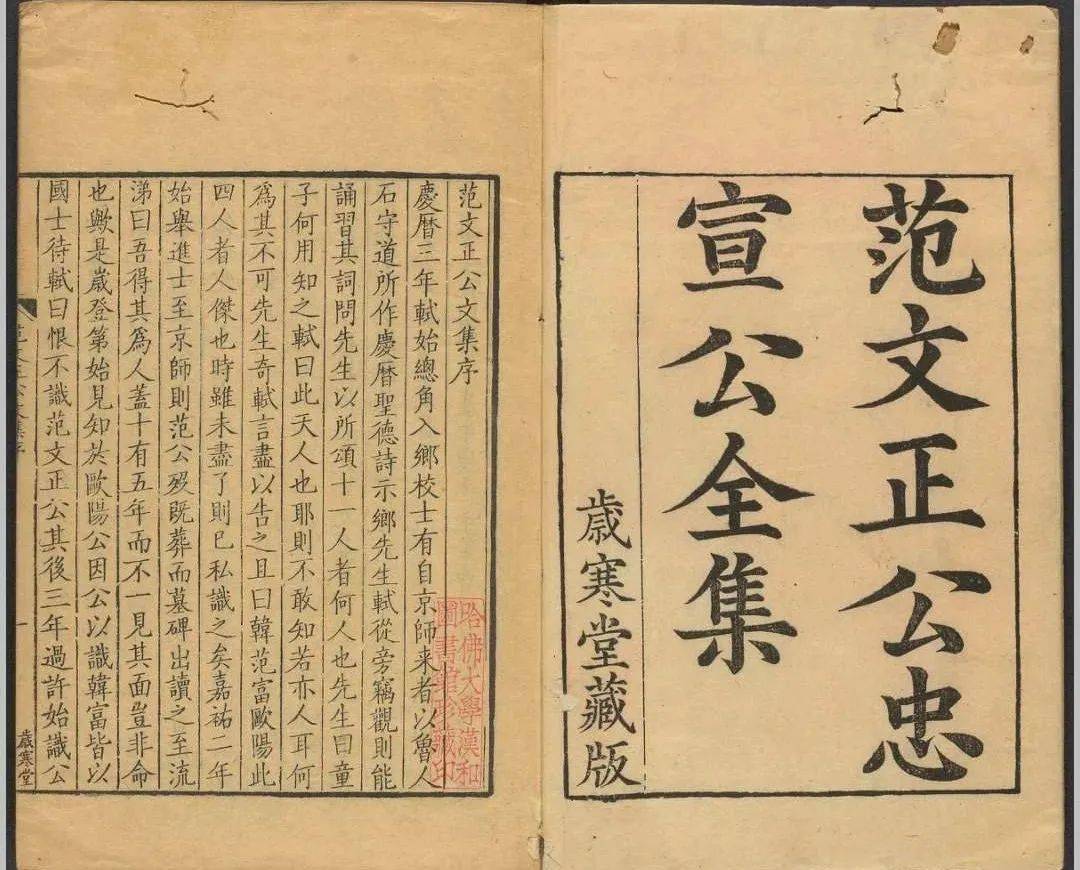 范文正公忠
宣公全集
歲寒堂藏版
范文正公文集序
慶曆三年軾始總角入鄉校士有自京師来者以魯人
石守道所作慶曆聖德詩示鄉先生軾從旁竊觀則能
誦習其詞問先生以所頌十一人者何人也先生曰童
子何用知之軾曰此天人也耶則不敢知若亦人耳何
爲其不可先生奇軾言盡以告之且曰韓范富歐陽此
四人者人傑也時雖未盡了則已私識之矣嘉祐二年
始舉進士至京師則范公歿既葬而墓碑出讀之至流
涕曰吾得其爲人蓋十有五年而不一見其面豈非命
也歟是歲登第始見知於歐陽公因公以識韓富皆以
國士待軾曰恨不識范文正公其後三年過許始識公
范文正公文集序
一
歲寒堂
哈佛大學漢和
圖書館珍藏印